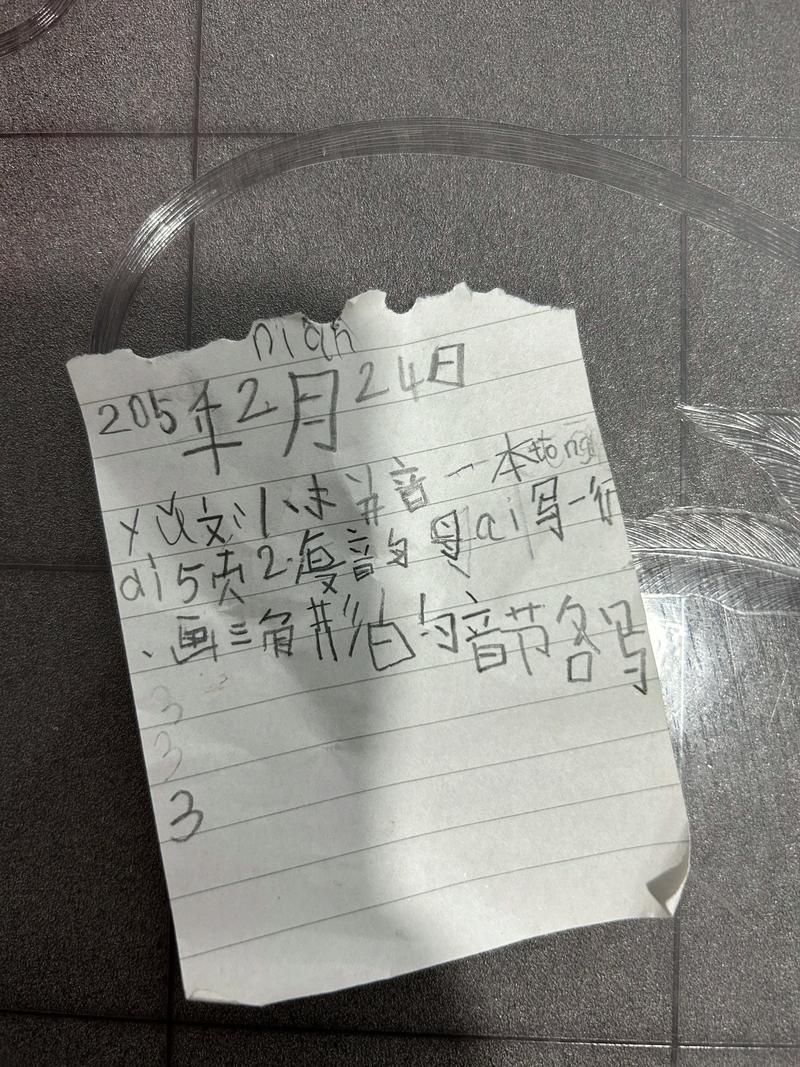 nian
205年2月24日
yǔ文:1、未拼音一本tong
ai5页2.复韵母ai写一行
、画三角形的音节各写
3
3
3